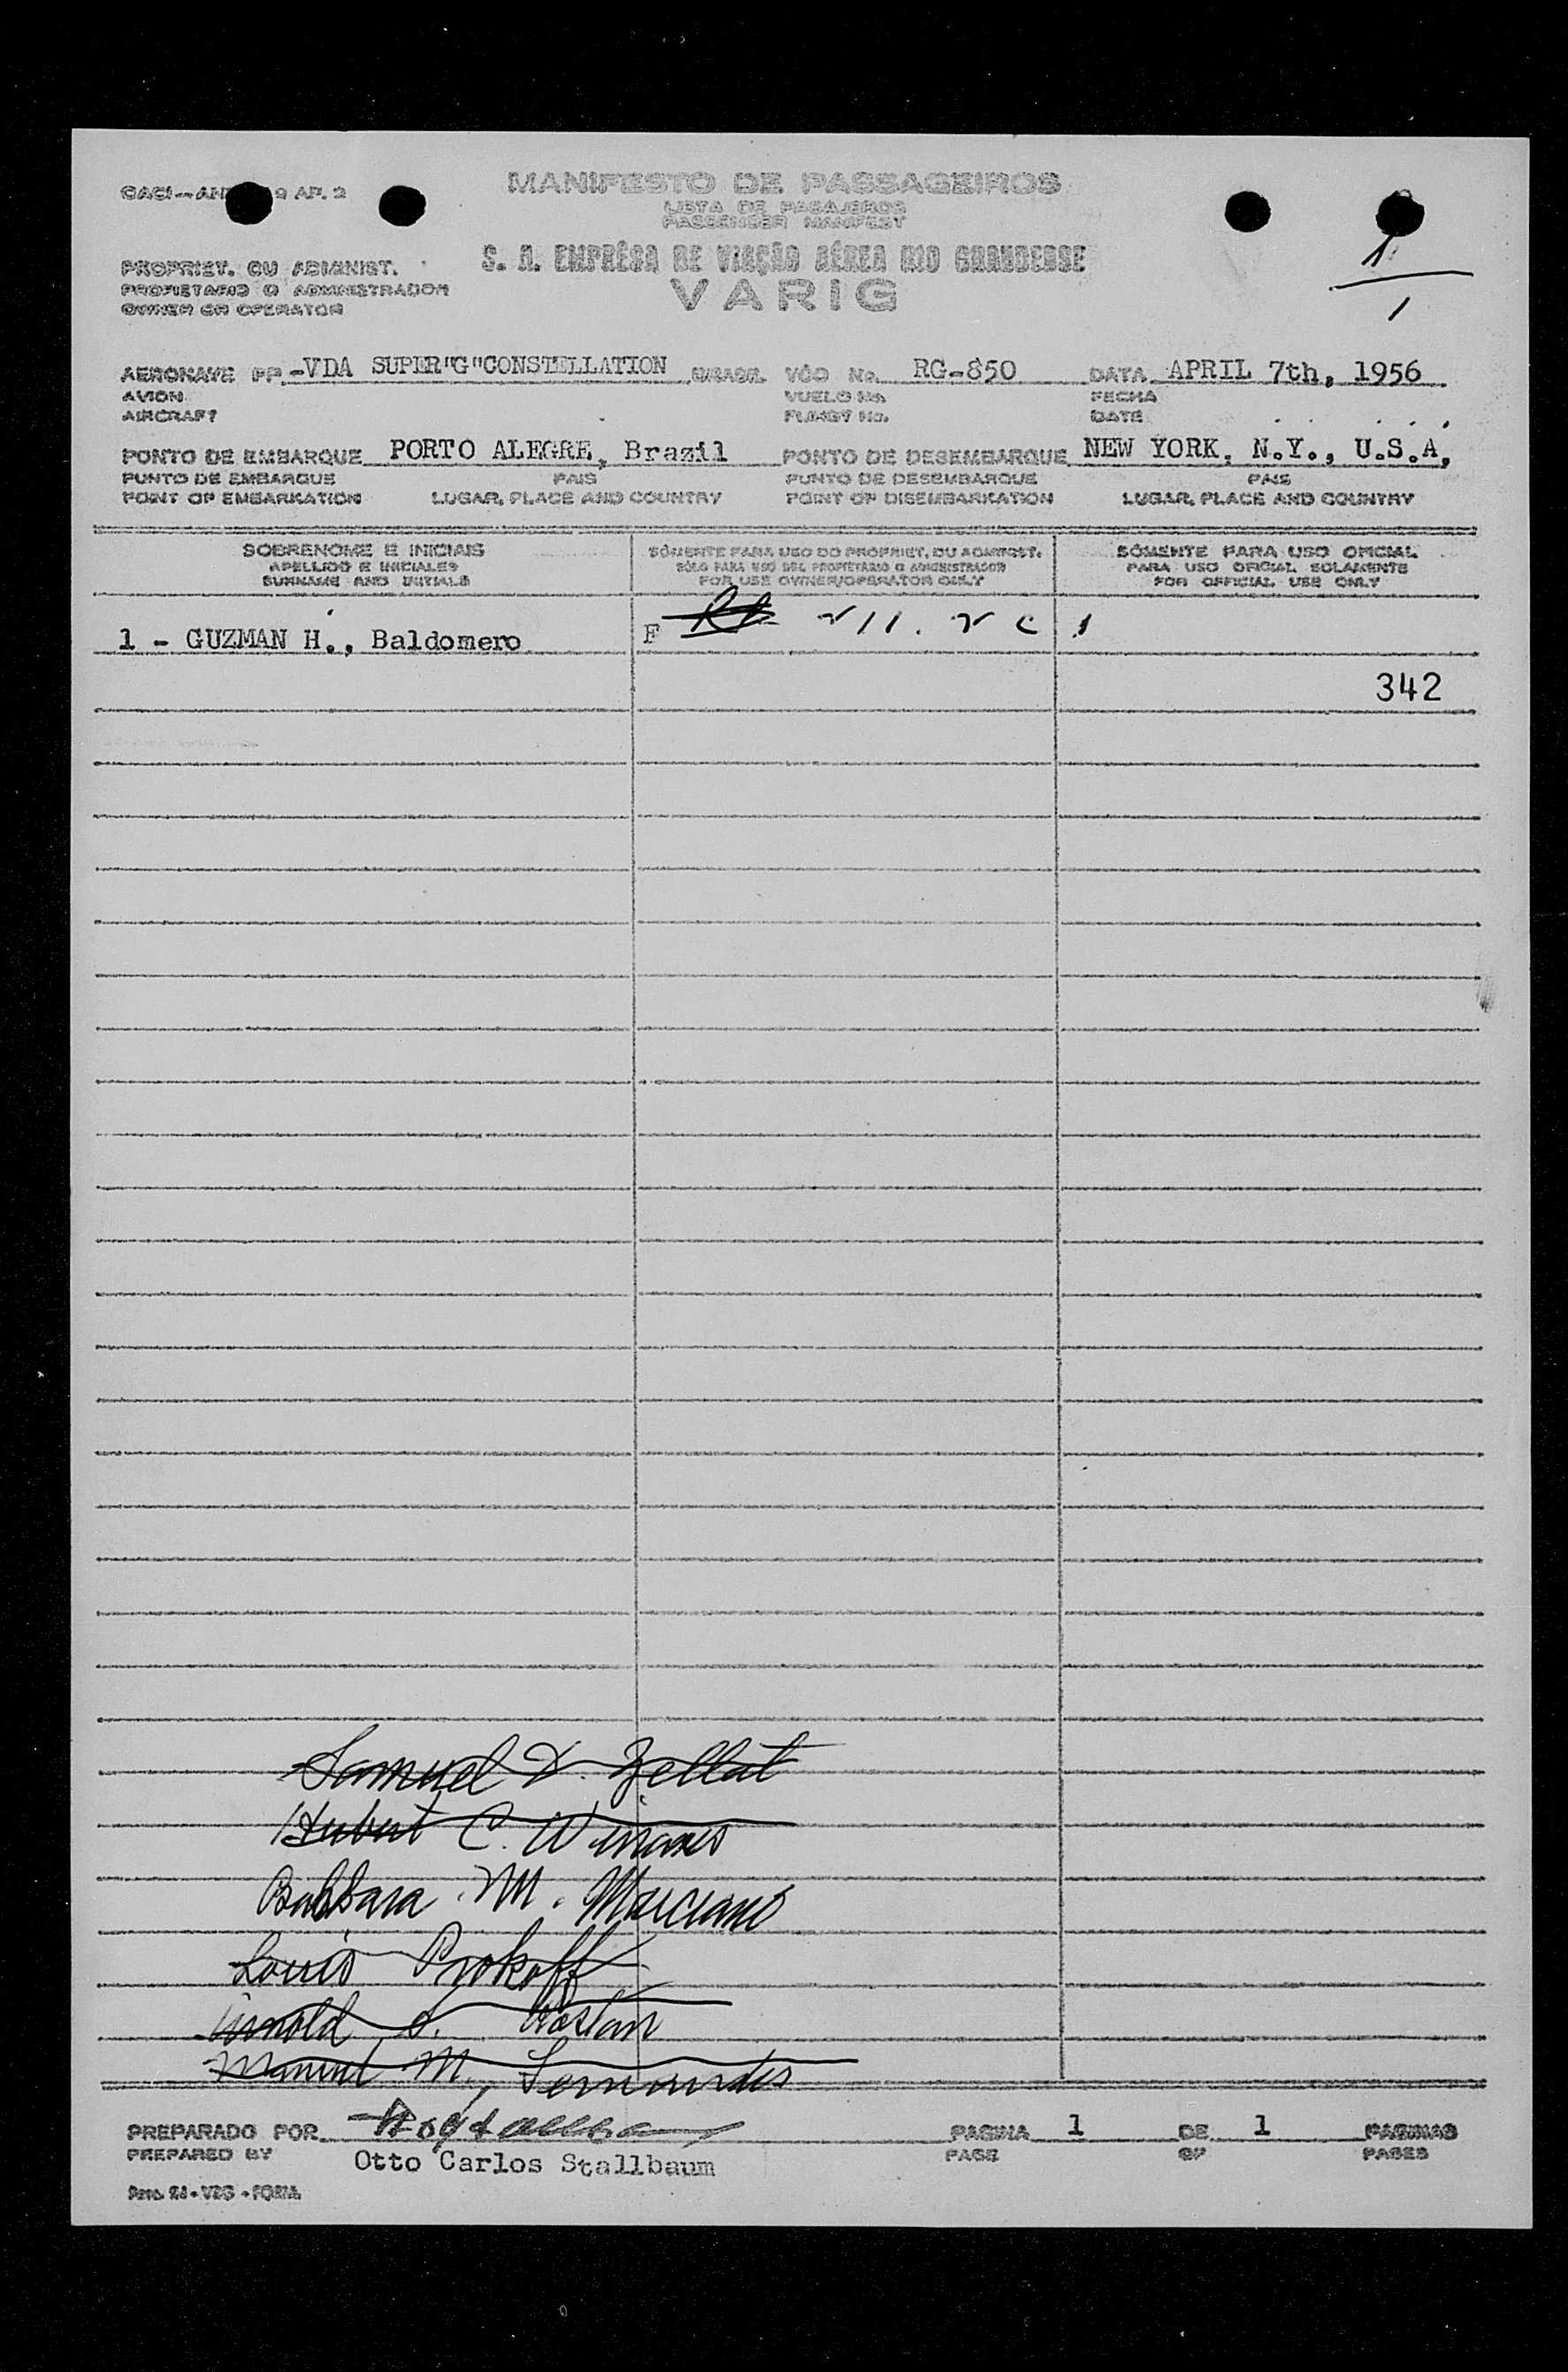 MANIFESTO DE PASSAGEIROS
LISTA DE PASAJEROS
PASSENGER MANIFEST
S. A. EMPRÊSA DE VIAÇÃO AÉREA RIO GRANDENSE
VARIG
PROPRIET. OU ADMINIST.
PROPIETARIO O ADMINISTRADOR
OWNER OR OPERATOR
1
1
AERONAVE PP -VDA SUPER"G"CONSTELLATION BRASIL VÔO No. RG-850 DATA APRIL 7th, 1956
AVION VUELO No. FECHA
AIRCRAFT FLIGHT No. DATE
PONTO DE EMBARQUE PORTO ALEGRE, Brazil PONTO DE DESEMBARQUE NEW YORK. N.Y., U.S.A,
PUNTO DE EMBARQUE PAIS PUNTO DE DESEMBARQUE PAIS
POINT OF EMBARKATION LUGAR, PLACE AND COUNTRY POINT OF DISEMBARKATION LUGAR, PLACE AND COUNTRY
SOBRENOME E INICIAIS SÓMENTE PARA USO DO PROPRIET. OU ADMINIST. SÓMENTE PARA USO OFICIAL
APELLIDO E INICIALES SÓLO PARA USO DEL PROPIETARIO O ADMINISTRADOR PARA USO OFICIAL SOLAMENTE
SURNAME AND INITIALS FOR USE OWNER/OPERATOR ONLY FOR OFFICIAL USE ONLY
1 - GUZMAN H., Baldomero F
342
Samuel D. Zellat
Hubert C.
Barbara M. Marciano
Louis Prokoff
Arnold
Manuel M. Fernandes
PREPARADO POR PAGINA 1 DE 1 PAGINAS
PREPARED BY Otto Carlos Stallbaum PAGE OF PAGES